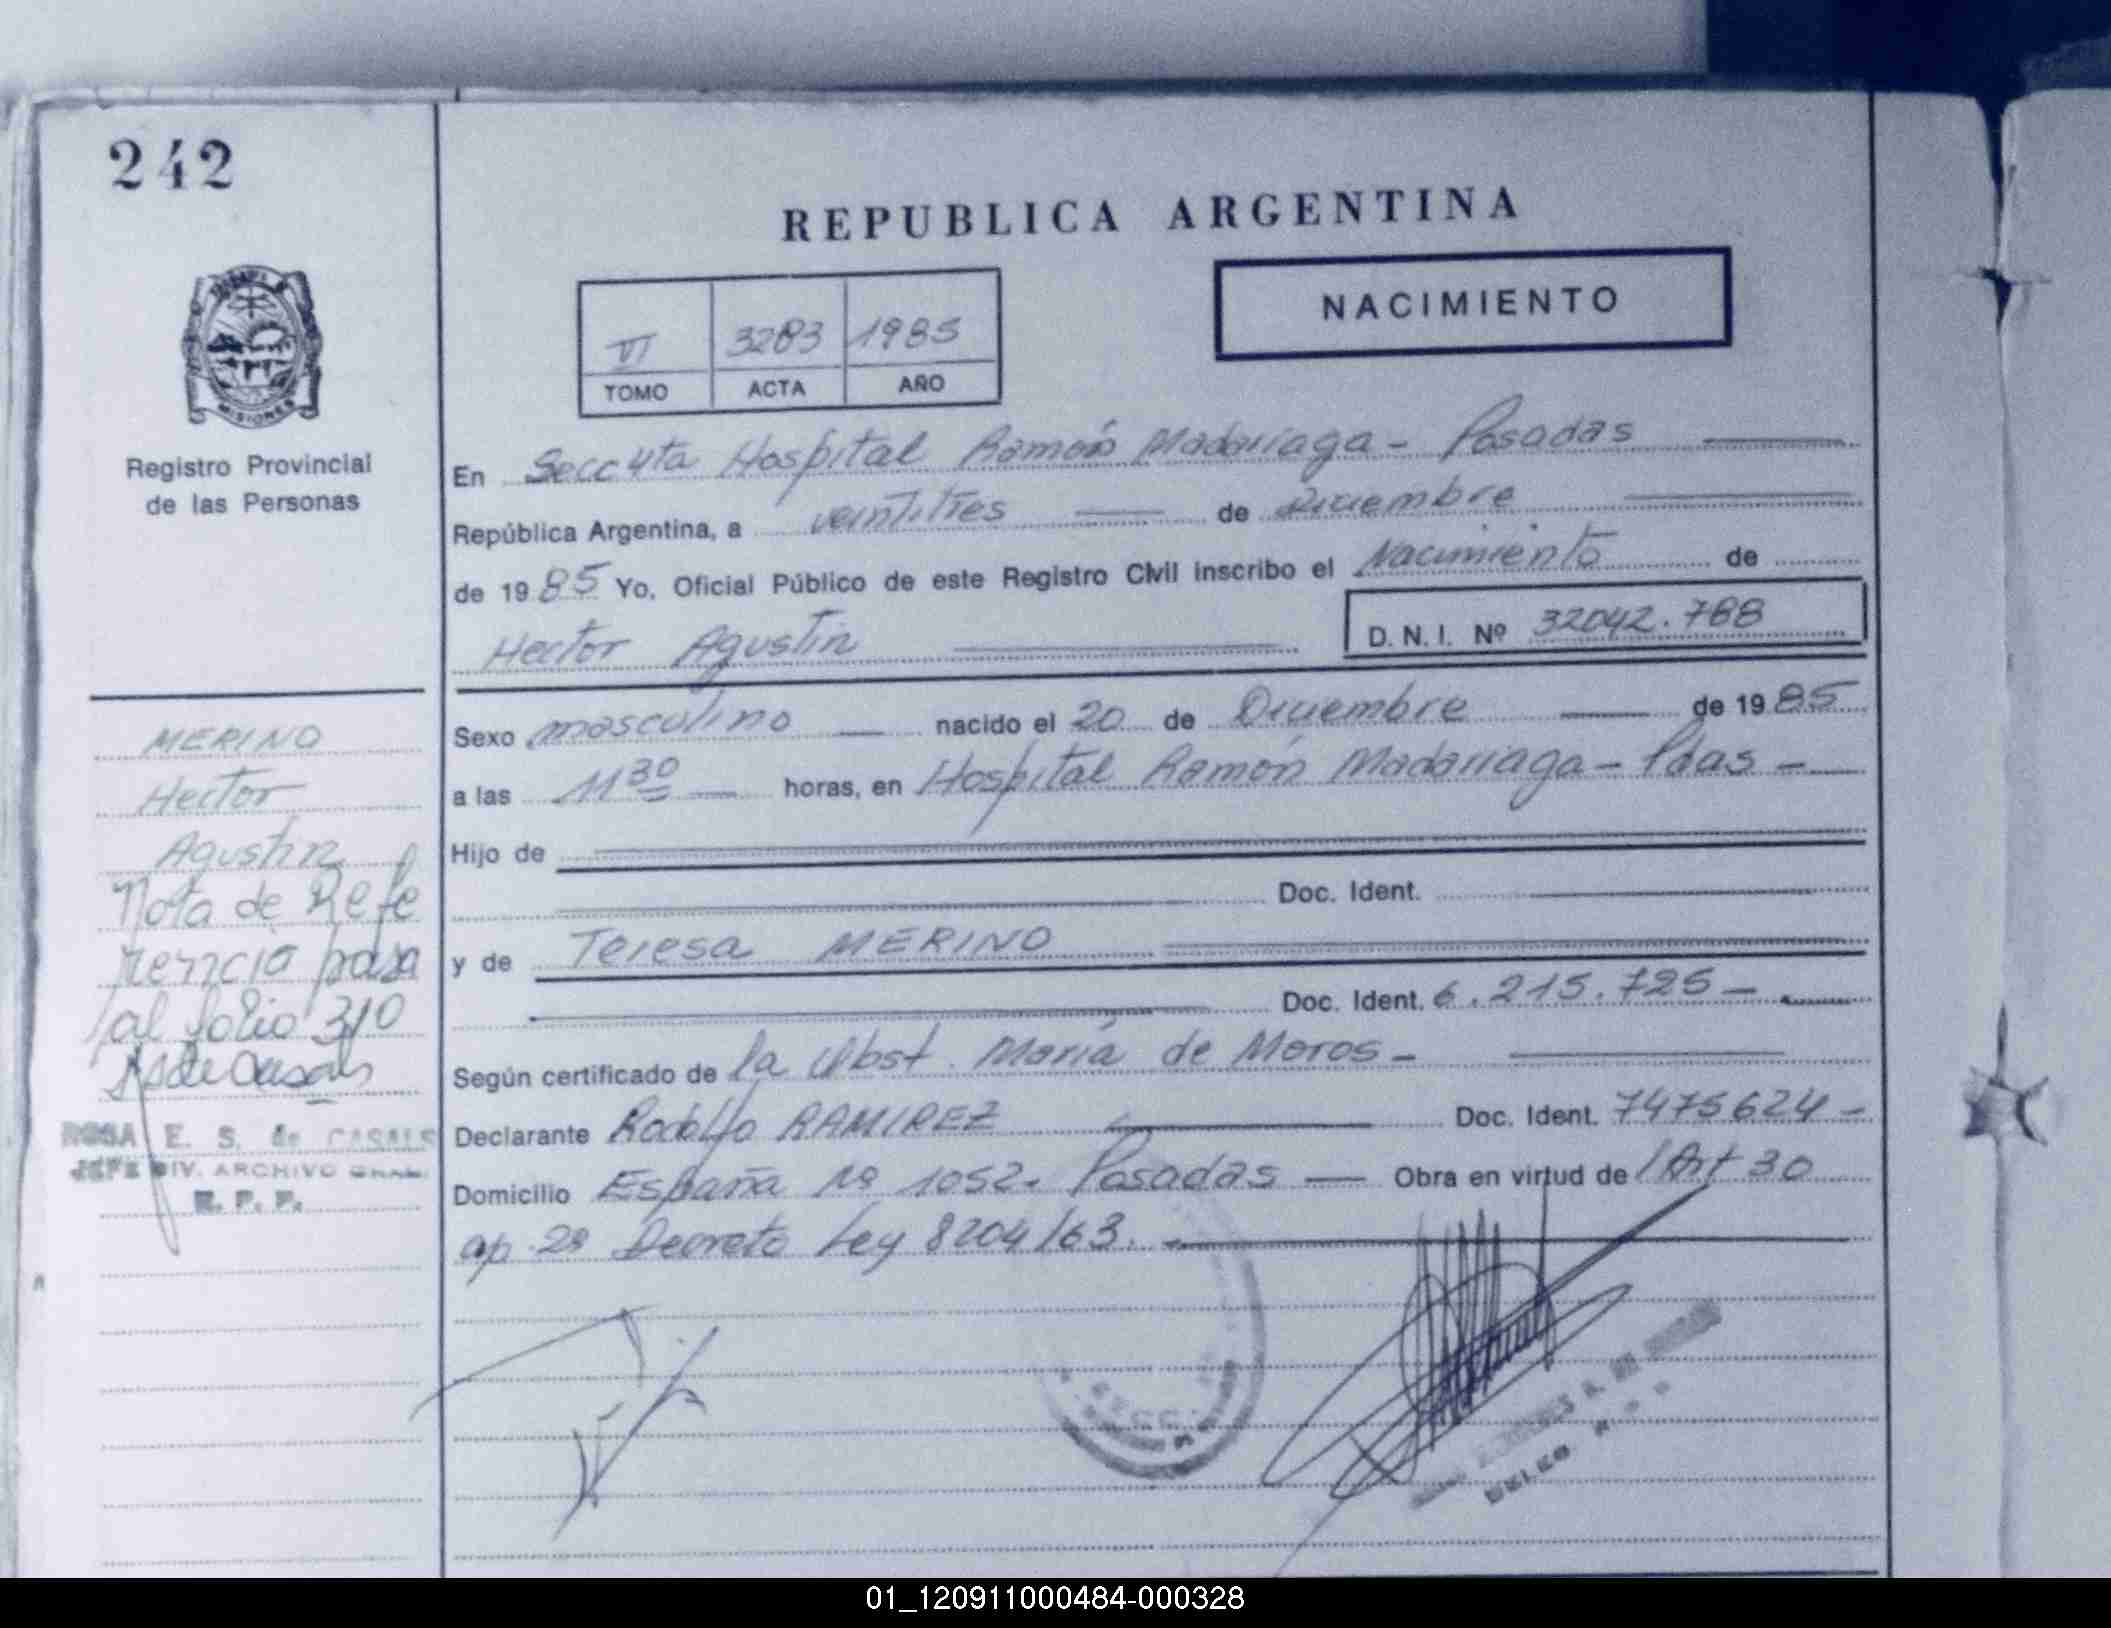 242
MISIONES
Registro Provincial
de las Personas
MERINO
Hector
Agustin
Nota de Refe
rencia pasa
al folio 310
ROSA E. S. de CASALS
JEFE DIV. ARCHIVO GRAL.
R. P. P.
REPUBLICA ARGENTINA
NACIMIENTO
VI 3283 1985
TOMO ACTA AÑO
En Secc 4ta Hospital Ramón Madariaga - Posadas
República Argentina, a veintitres de Diciembre
de 1985 Yo, Oficial Público de este Registro Civil inscribo el Nacimiento de
Hector Agustin D. N. I. Nº 32042.788
Sexo masculino nacido el 20 de Diciembre de 1985
a las 11 30 horas, en Hospital Ramón Madariaga - Pdas -
Hijo de
Doc. Ident.
y de Teresa MERINO
Doc. Ident. 6.215.725 -
Según certificado de la Obst. María de Moros -
Declarante Rodolfo RAMIREZ Doc. Ident. 7475624 -
Domicilio España Nº 1052. Posadas — Obra en virtud de l Art 30
ap. 2º Decreto Ley 8204/63.
01_120911000484-000328